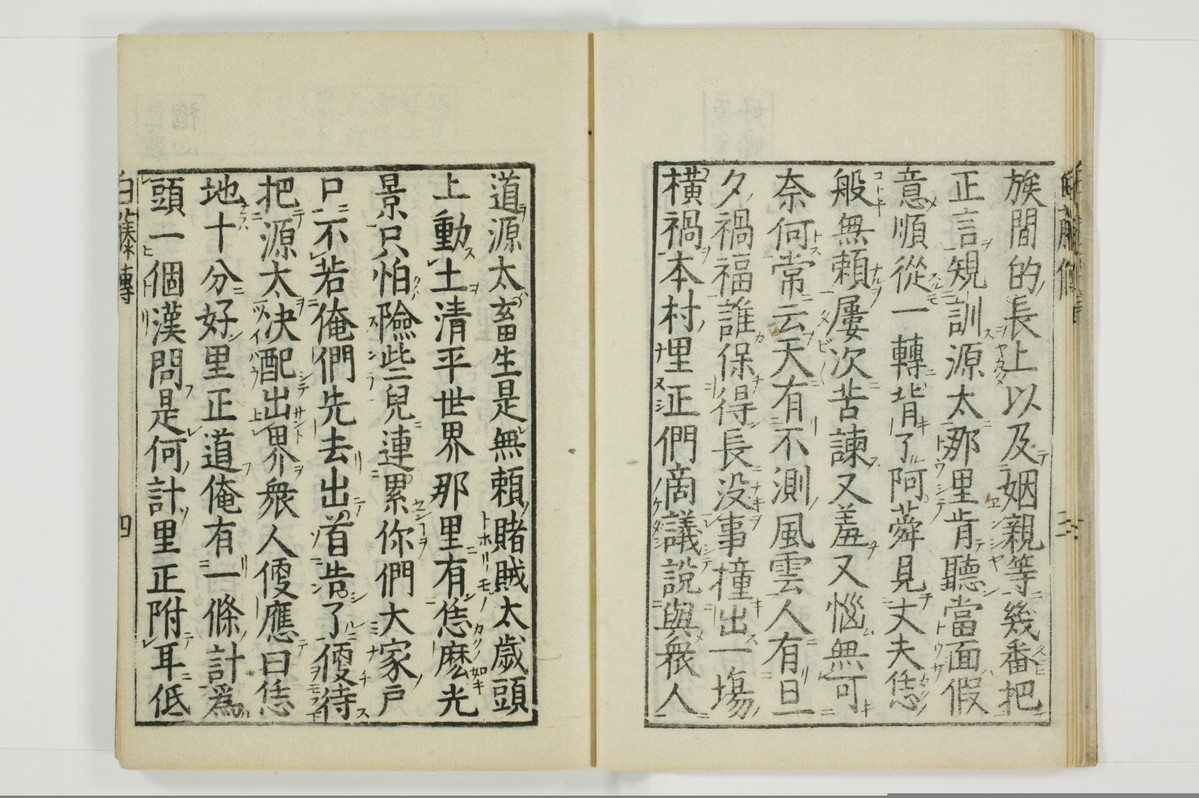 族間的長上以及姻親等幾番把
正言規訓源太那里肯聽當面假
意順從一轉背了阿蕣見丈夫恁
般無賴屢次苦諫又羞又惱無可
奈何常云天有不測風雲人有旦
夕禍福誰保得長没事撞出一塲
橫禍本村里正們商議説與衆人
道源太畜生是無賴賭賊太歲頭
上動土清平世界那里有恁麽光
景只怕險些兒連累你們大家戸
口不若俺們先去出首告了便待
把源太决配出界衆人便應曰恁
地十分好里正道俺有一條計爲
頭一個漢問是何計里正附耳低
白藤傳
四